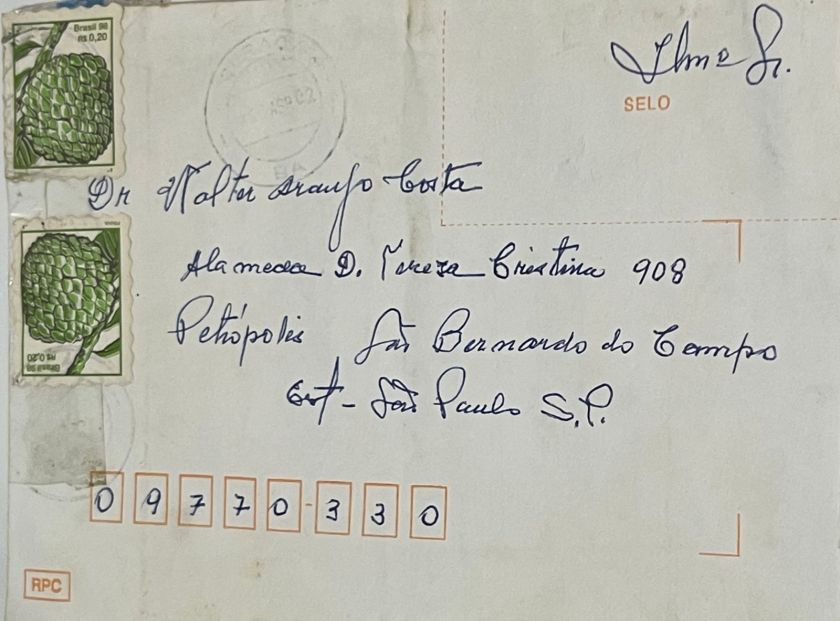 Brasil 98
R$ 0,20
Ilmo Sr.
SELO
BA
Dr Walter Araujo Costa
Alameda D. Tereza Cristina 908
Petrópolis São Bernardo do Campo
Est - São Paulo S.P.
Brasil 98
R$ 0,20
09770-330
RPC